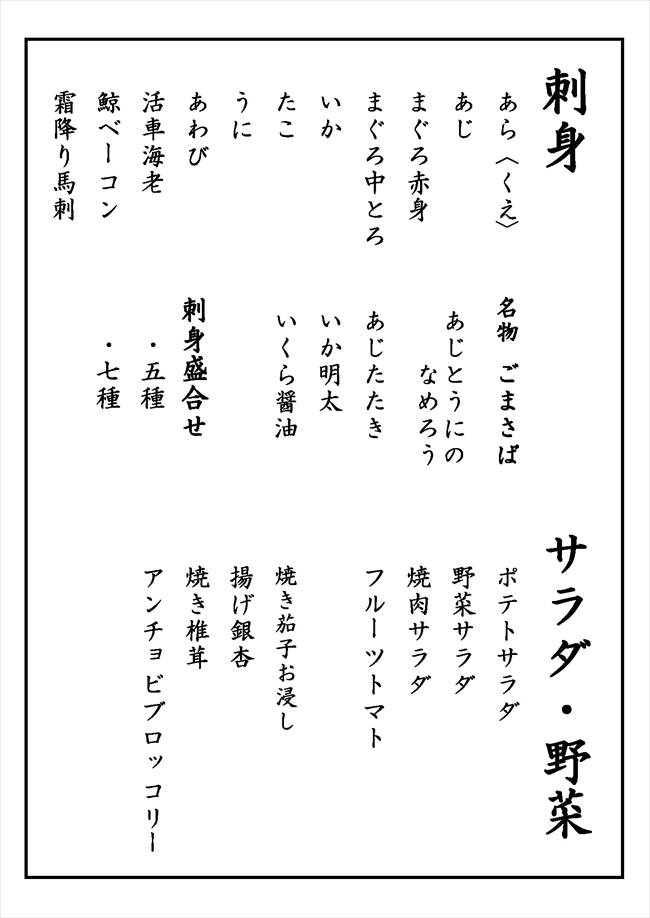 刺身
あら〈くえ〉
あじ
まぐろ赤身
まぐろ中とろ
いか
たこ
うに
あわび
活車海老
鯨ベーコン
霜降り馬刺
名物 ごまさば
あじとうにの
なめろう
あじたたき
いか明太
いくら醤油
刺身盛合せ
・五種
・七種
サラダ・野菜
ポテトサラダ
野菜サラダ
焼肉サラダ
フルーツトマト
焼き茄子お浸し
揚げ銀杏
焼き椎茸
アンチョビブロッコリー